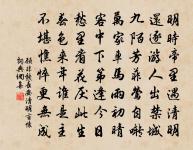 明時帝里遇清明
還逐遊人出禁城
九陌芳菲鶯自囀
萬家車馬雨初晴
客中下第逢今日
愁裏看花厭此生
春色來年誰是主
不堪憔悴更無成
顧非熊長安清明言懷
詞典網集